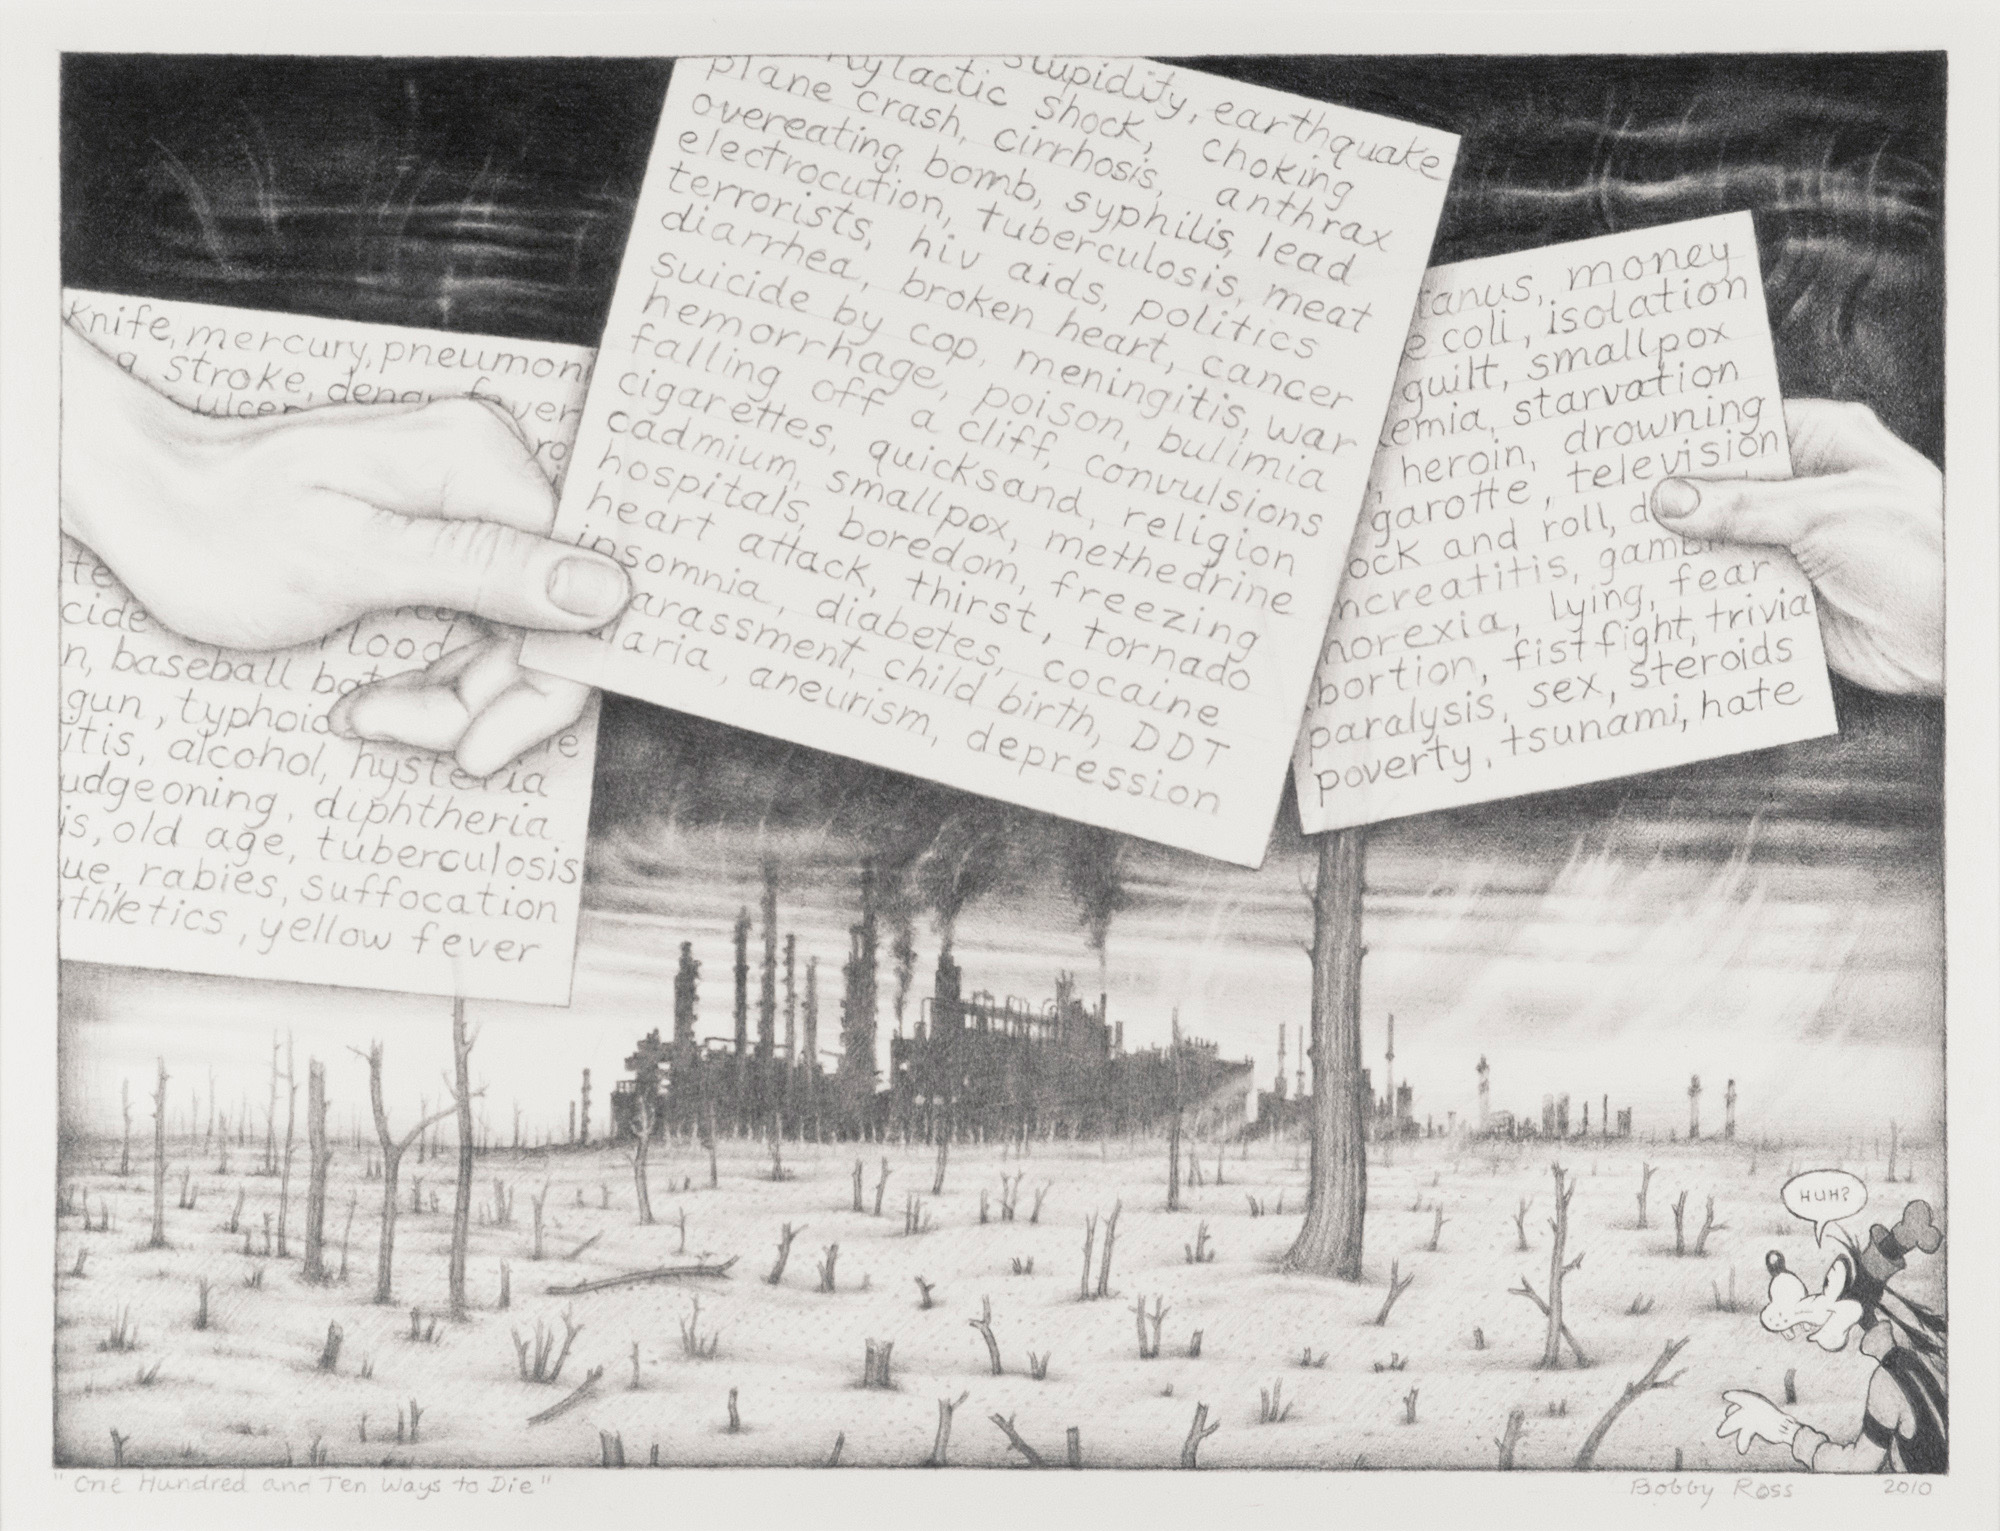 Knife, mercury, pneumon
g, stroke, deng fever
ulcer
ro
te
cide
lood
n, baseball bat
gun, typhoid
itis, alcohol, hysteria
udgeoning, diphtheria
is, old age, tuberculosis
ue, rabies, suffocation
thletics, yellow fever
stupidity, earthquake
hylactic shock, choking
plane crash, cirrhosis, anthrax
overeating, bomb, syphilis, lead
electrocution, tuberculosis, meat
terrorists, hiv aids, politics
diarrhea, broken heart, cancer
suicide by cop, meningitis, war
hemorrhage, poison, bulimia
falling off a cliff, convulsions
cigarettes, quicksand, religion
cadmium, smallpox, methedrine
hospitals, boredom, freezing
heart attack, thirst, tornado
insomnia, diabetes, cocaine
arassment, child birth, DDT
laria, aneurism, depression
tanus, money
e coli, isolation
guilt, smallpox
emia, starvation
, heroin, drowning
garotte, television
ock and roll, d
ncreatitis, gamb
norexia, lying, fear
bortion, fist fight, trivia
paralysis, sex, steroids
poverty, tsunami, hate
HUH?
"One Hundred and Ten Ways to Die"
Bobby Ross 2010